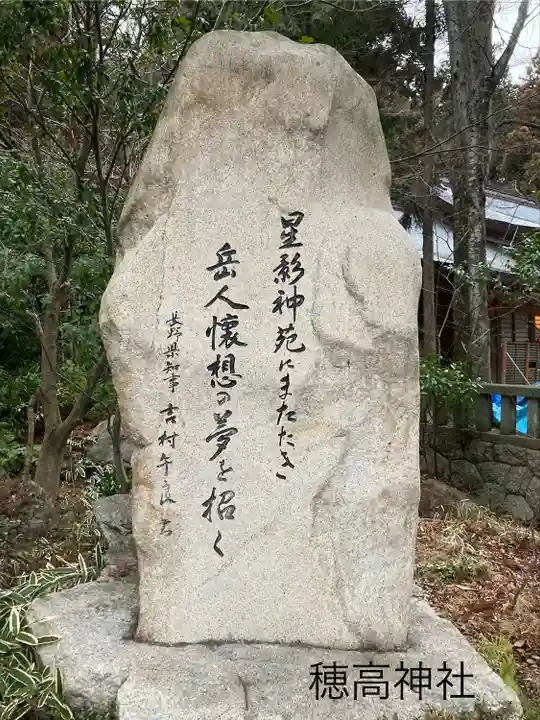 星影神苑にまたたき
岳人懐想の夢を招く
長野県知事 吉村午良書
穂高神社